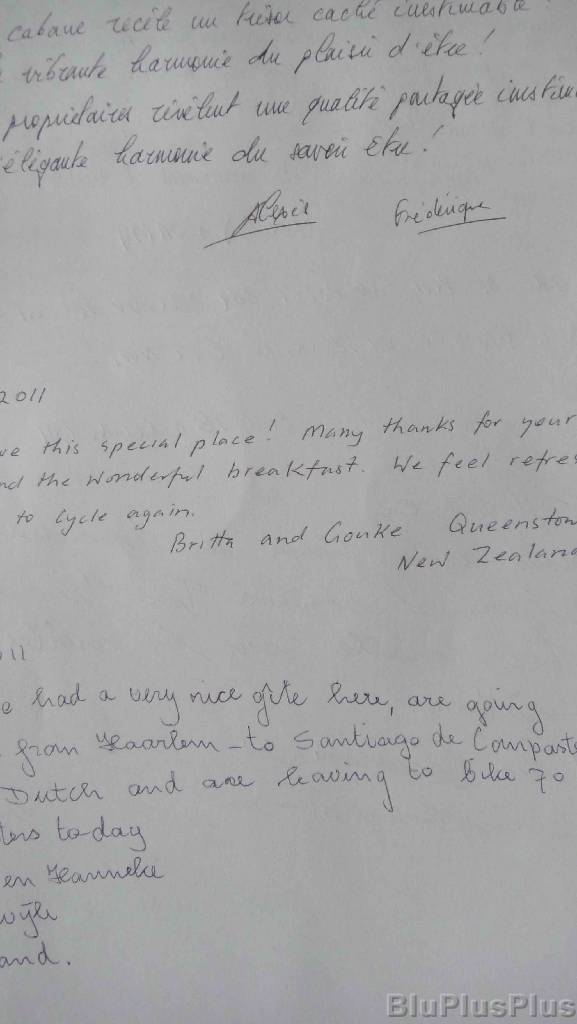 cabane recèle un trésor caché inestimable !
vibrante harmonie du plaisir d'être !
propriétaires révèlent une qualité partagée inestim
élégante harmonie du savoir être !
Alexis Frédérique
2011
ve this special place! Many thanks for your
nd the wonderful breakfast. We feel refres
to cycle again.
Britta and Gouke Queenstown
New Zealand
011
e had a very nice gîte here, are going
from Haarlem - to Santiago de Compaste
Dutch and are leaving to bike 70
ters today
en Hanneke
wijk
and.
BluPlusPlus